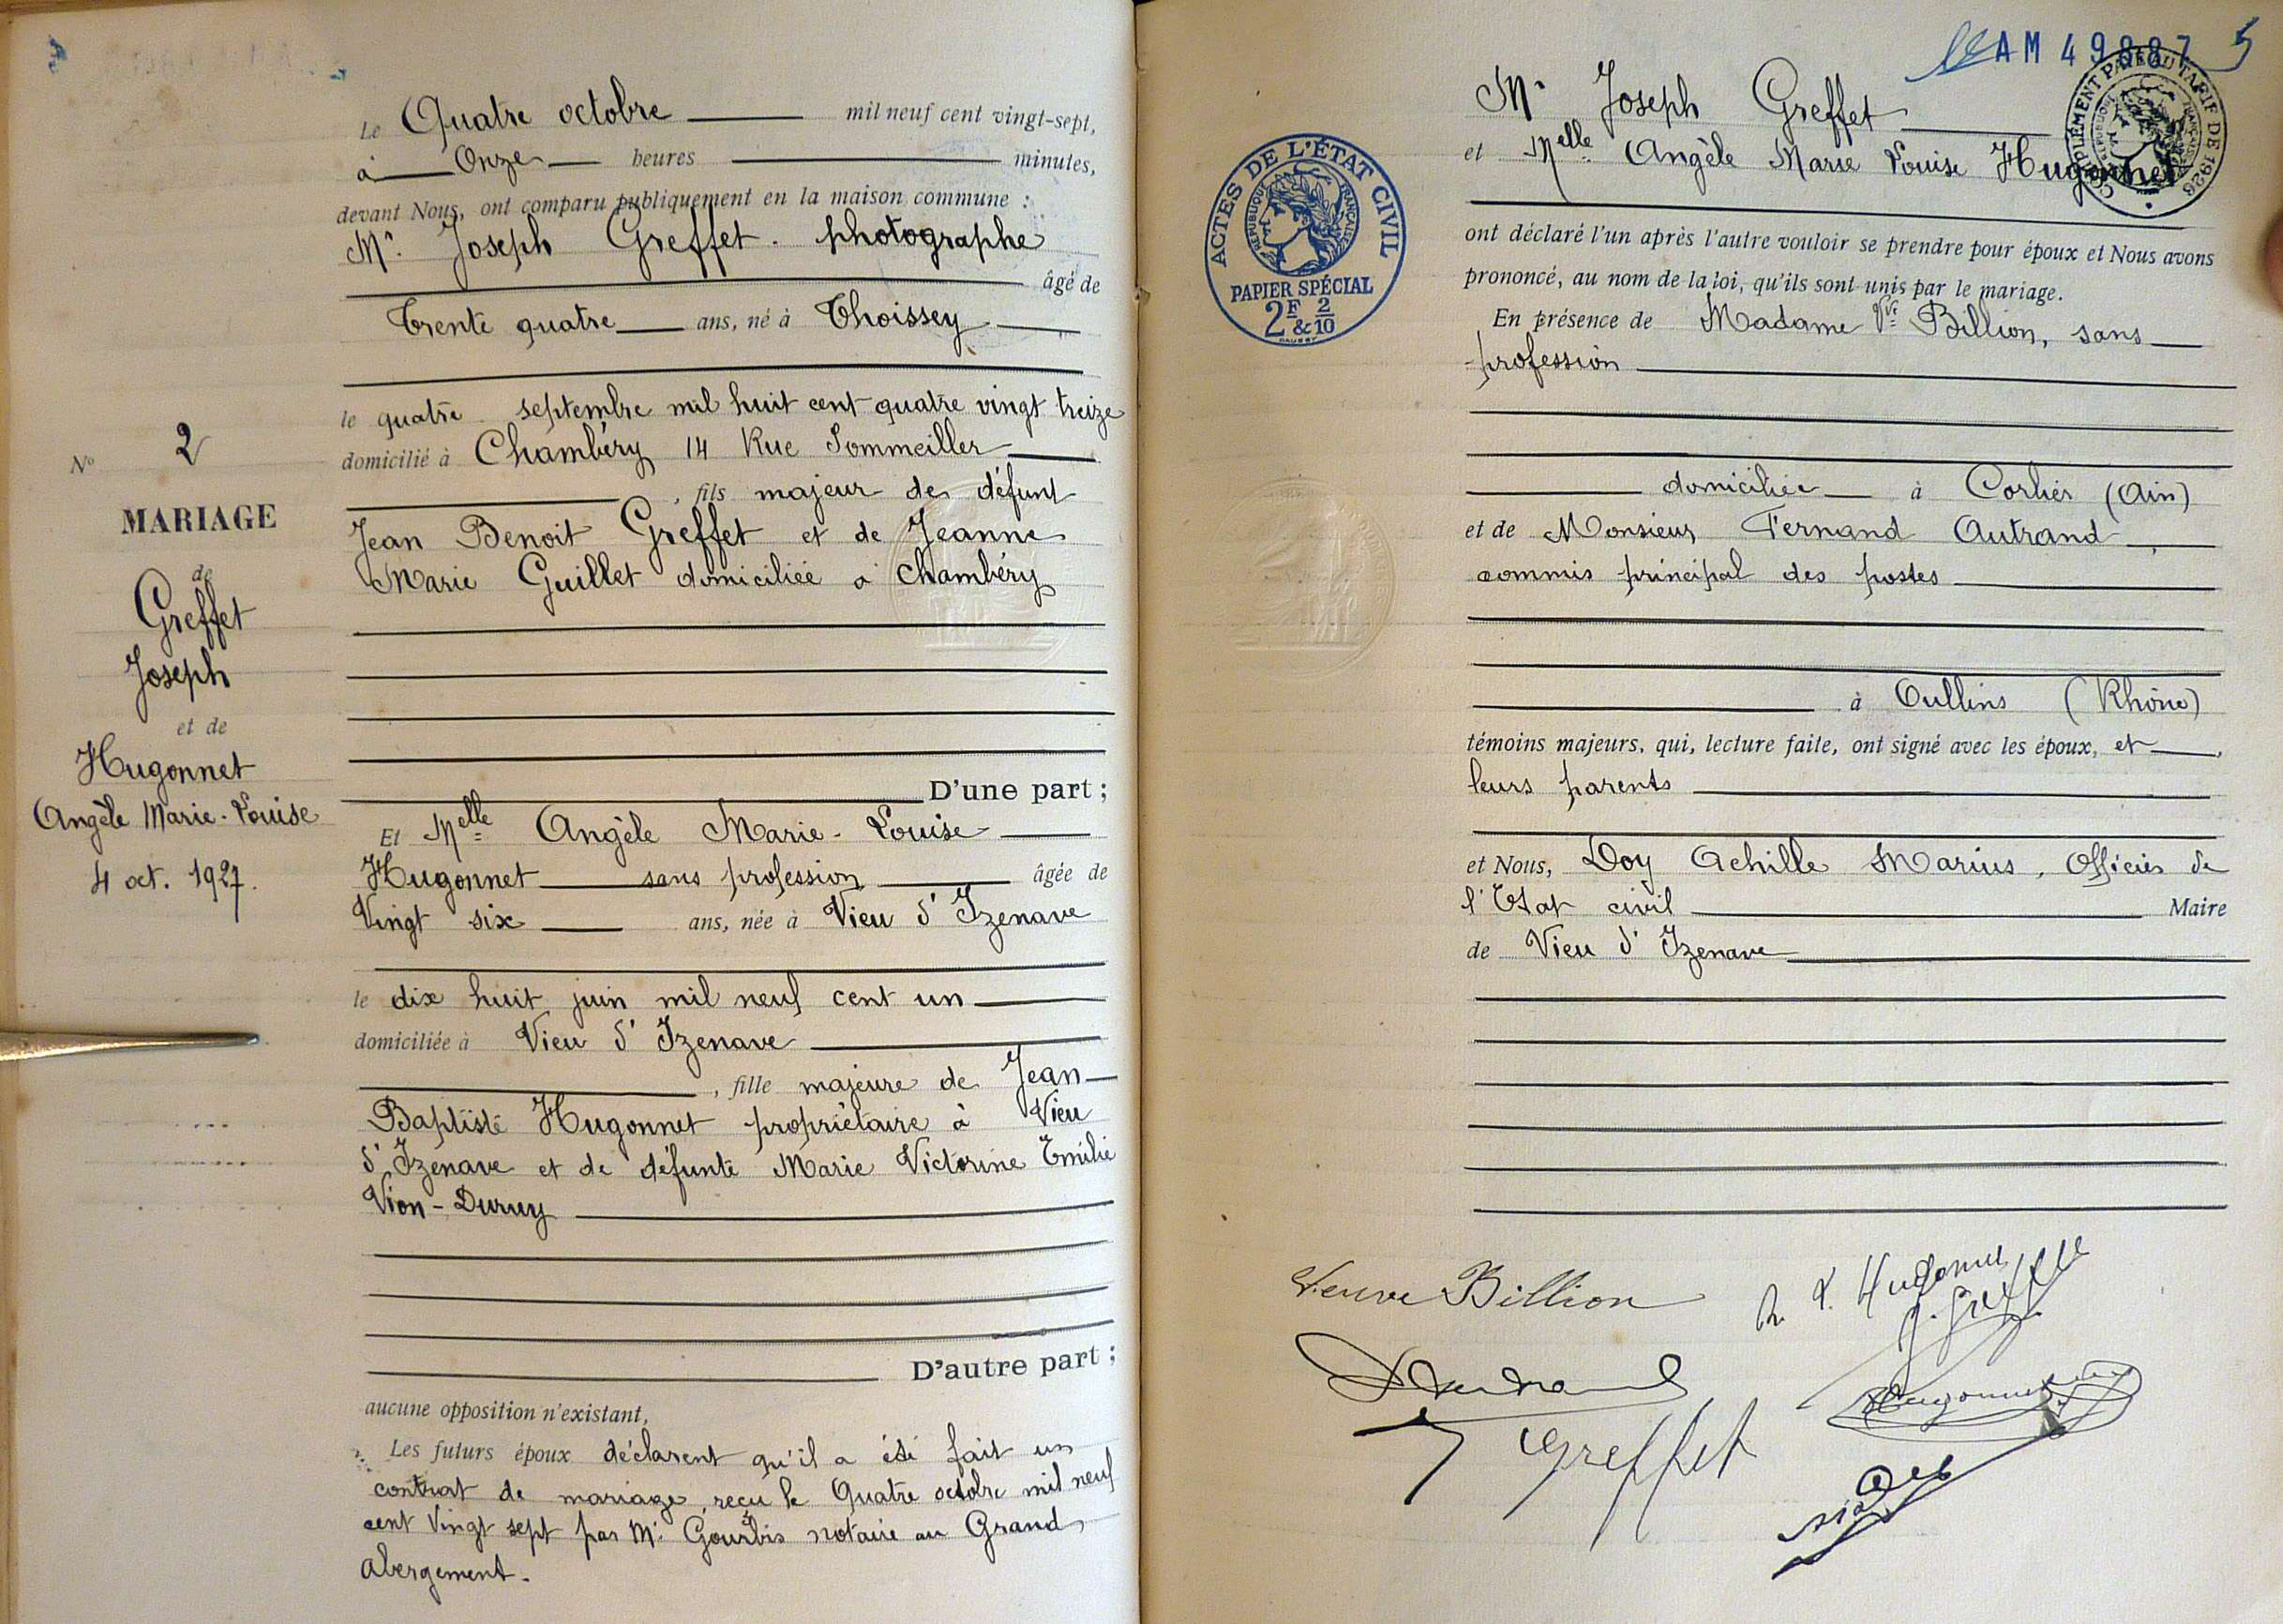 Le Quatre octobre mil neuf cent vingt-sept,
à Onze heures minutes,
devant Nous, ont comparu publiquement en la maison commune :
Mr. Joseph Greffet. photographe
âgé de
Trente quatre ans, né à Thoissey
le quatre septembre mil huit cent quatre vingt treize
domicilié à Chambéry 14 Rue Sommeiller
, fils majeur de défunt
Jean Benoit Greffet et de Jeanne
Marie Guillet domiciliée à Chambéry
D'une part ;
Et Melle Angèle Marie-Louise
Hugonnet sans profession âgée de
Vingt six ans, née à Vieu d'Izenave
le dix huit juin mil neuf cent un
domiciliée à Vieu d'Izenave
, fille majeure de Jean
Baptiste Hugonnet propriétaire à Vieu
d'Izenave et de défunte Marie Victorine Emilie
Vion-Duruy
D'autre part ;
aucune opposition n'existant,
Les futurs époux déclarent qu'il a été fait un
contrat de mariage, reçu le Quatre octobre mil neuf
cent vingt sept par Me notaire au Grand
Abergement.
No 2
MARIAGE
de
Greffet
Joseph
et de
Hugonnet
Angèle Marie-Louise
4 oct. 1927.
AM 49887 5
Mr Joseph Greffet
et Melle Angèle Marie Louise Hugonnet
COMPLÉMENT PAYÉ AU TARIF DE 1926
RÉPUBLIQUE FRANÇAISE
ACTES DE L'ÉTAT CIVIL
RÉPUBLIQUE FRANÇAISE
PAPIER SPÉCIAL
2F & 2/10
ont déclaré l'un après l'autre vouloir se prendre pour époux et Nous avons
prononcé, au nom de la loi, qu'ils sont unis par le mariage.
En présence de Madame Vve Billion, sans
profession
domiciliée à Corlier (Ain)
et de Monsieur Fernand Autrand,
commis principal des postes
à Oullins (Rhône)
témoins majeurs, qui, lecture faite, ont signé avec les époux, et,
leurs parents
et Nous, Doy Achille Marius, Officier de
l'Etat civil Maire
de Vieu d'Izenave
Veuve Billion
Hugonnet
J. Greffet
Autrand
Hugonnet
Greffet